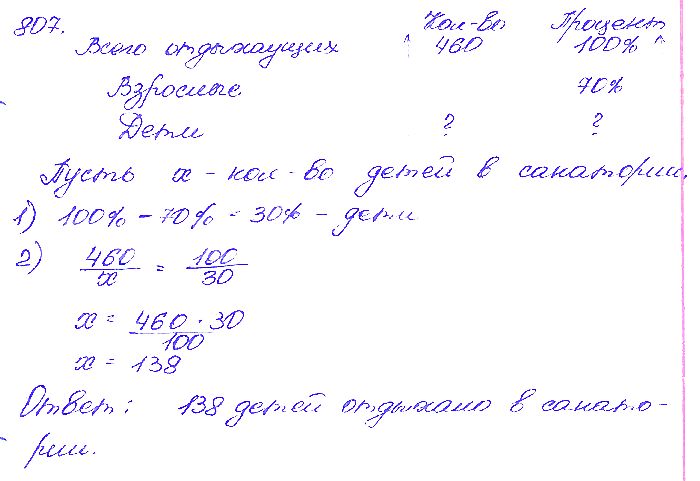 807. Кол-во Процент
Всего отдыхающих 460 100%
Взрослые 70%
Дети ? ?
Пусть x - кол-во детей в санатории.
1) 100% - 70% = 30% - дети
2) 460/x = 100/30
x = 460 · 30/100
x = 138
Ответ: 138 детей отдыхало в санато-
рии.